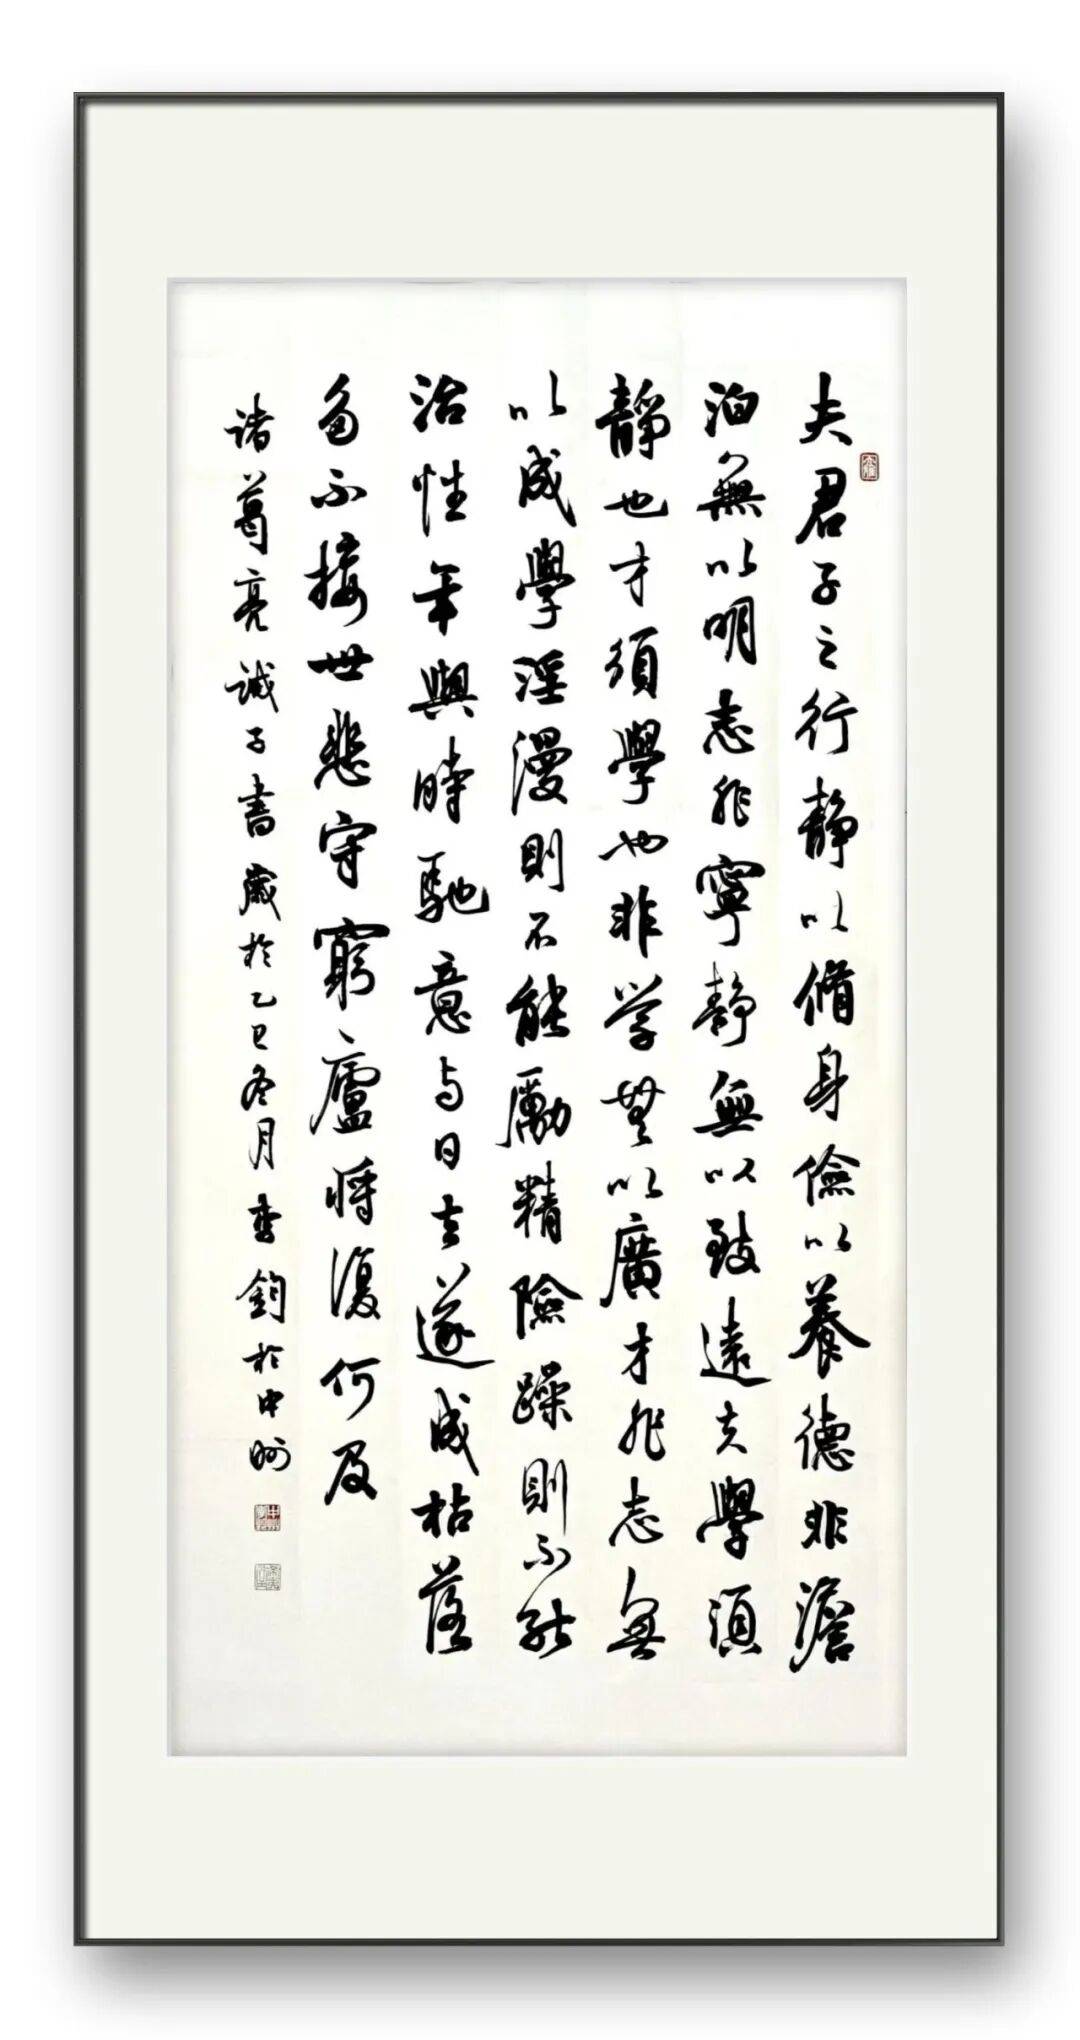 夫君子之行靜以脩身儉以養德非澹
泊無以明志非寧靜無以致遠夫學須
靜也才須學也非学無以廣才非志無
以成學淫漫則不能勵精險躁則不能
治性年與時馳意与日去遂成枯落
多不接世悲守窮廬將復何及
诸葛亮誡子書歲於乙巳冬月李鈞於中州